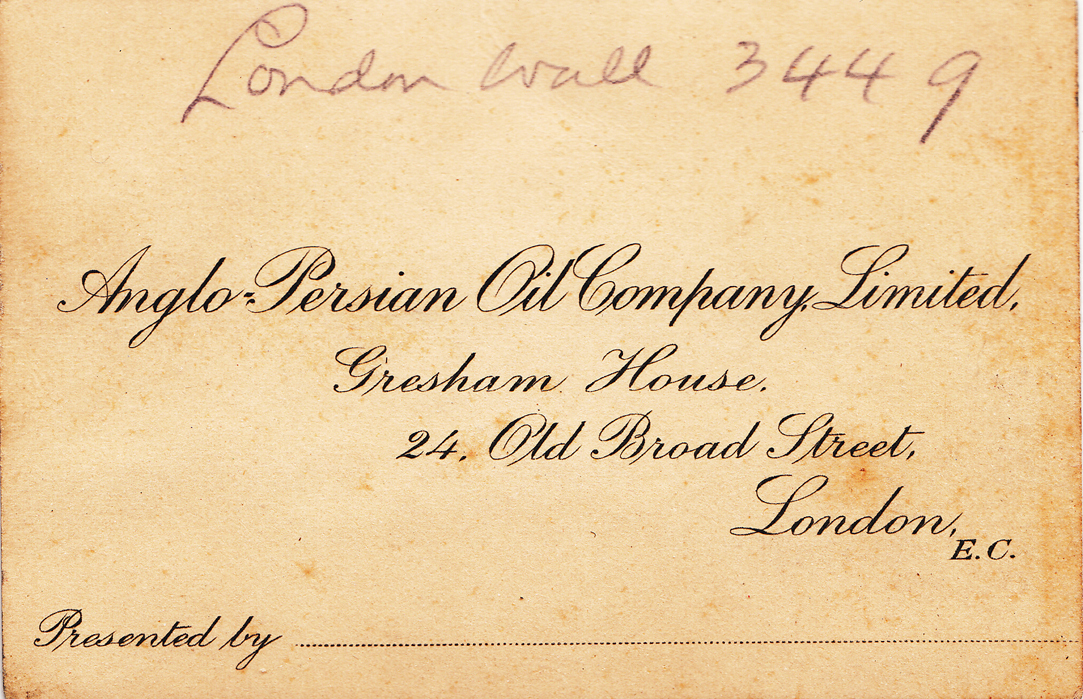 London Wall 3449
Anglo-Persian Oil Company, Limited,
Gresham House.
24, Old Broad Street,
London,
E.C.
Presented by